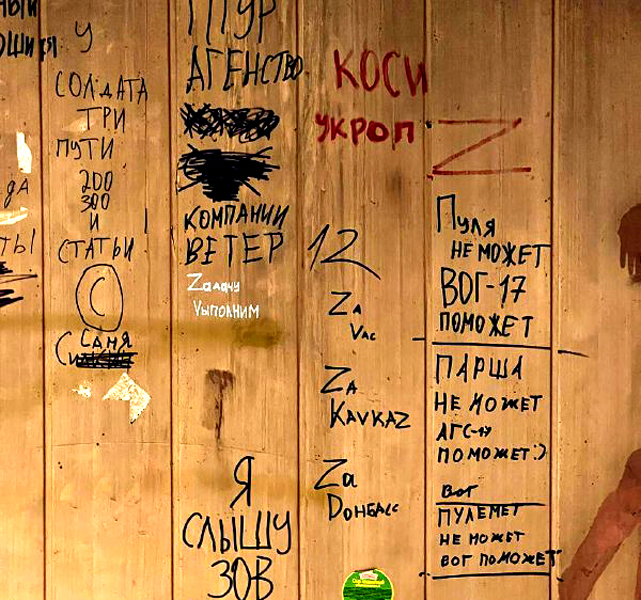 У
СОЛДАТА
ТРИ
ПУТИ
200
300
И
СТАТЬИ
С
САНЯ
АГЕНСТВО
КОМПАНИИ
ВЕТЕР
Zадачу
Vыполним
Я
СЛЫШУ
ЗОВ
КОСИ
УКРОП
12
ZА
Vас
ZА
KAVKAZ
Zа
Донбасс
Z
Пуля
НЕ МОЖЕТ
ВОГ-17
ПОМОЖЕТ
ПАРША
НЕ МОЖЕТ
АГС-17
ПОМОЖЕТ:)
Вот
ПУЛЕМЕТ
НЕ МОЖЕТ
ВОГ ПОМОЖЕТ